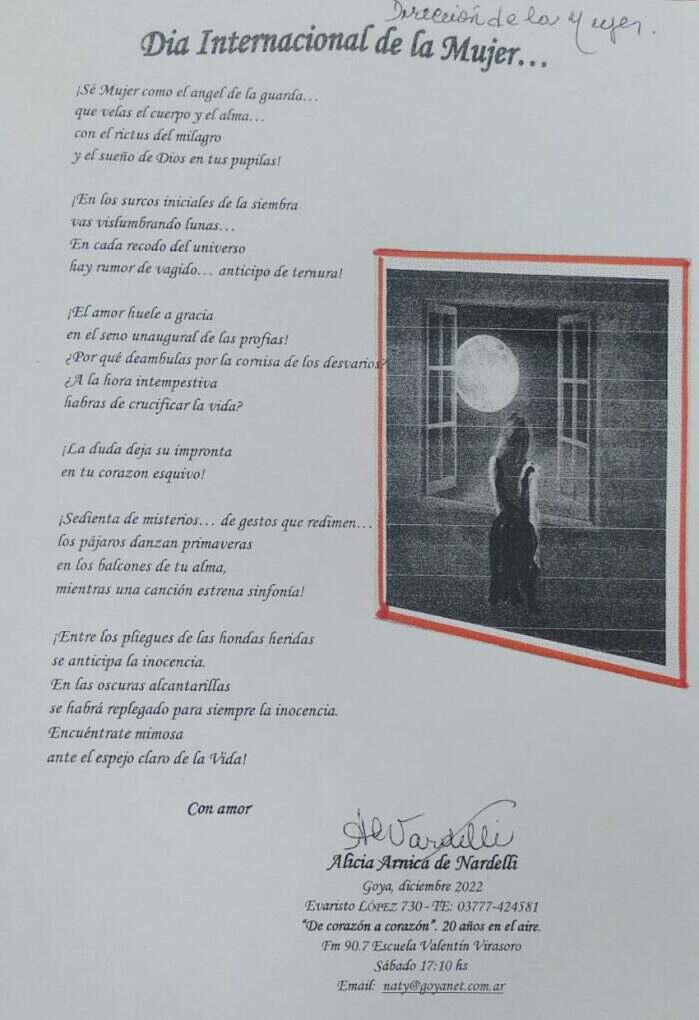 Dirección de la Mujer.
Dia Internacional de la Mujer...
¡Sé Mujer como el angel de la guarda...
que velas el cuerpo y el alma...
con el rictus del milagro
y el sueño de Dios en tus pupilas!
¡En los surcos iniciales de la siembra
vas vislumbrando lunas...
En cada recodo del universo
hay rumor de vagido... anticipo de ternura!
¡El amor huele a gracia
en el seno unaugural de las profias!
¿Por qué deambulas por la cornisa de los desvarios?
¿A la hora intempestiva
habras de crucificar la vida?
¡La duda deja su impronta
en tu corazon esquivo!
¡Sedienta de misterios... de gestos que redimen...
los pájaros danzan primaveras
en los balcones de tu alma,
mientras una canción estrena sinfonía!
¡Entre los pliegues de las hondas heridas
se anticipa la inocencia.
En las oscuras alcantarillas
se habrá replegado para siempre la inocencia.
Encuéntrate mimosa
ante el espejo claro de la Vida!
Con amor
Alicia Arnica de Nardelli
Goya, diciembre 2022
Evaristo LÓPEZ 730 - TE: 03777-424581
"De corazón a corazón". 20 años en el aire.
Fm 90.7 Escuela Valentín Virasoro
Sábado 17:10 hs
Email: naty@goyanet.com.ar